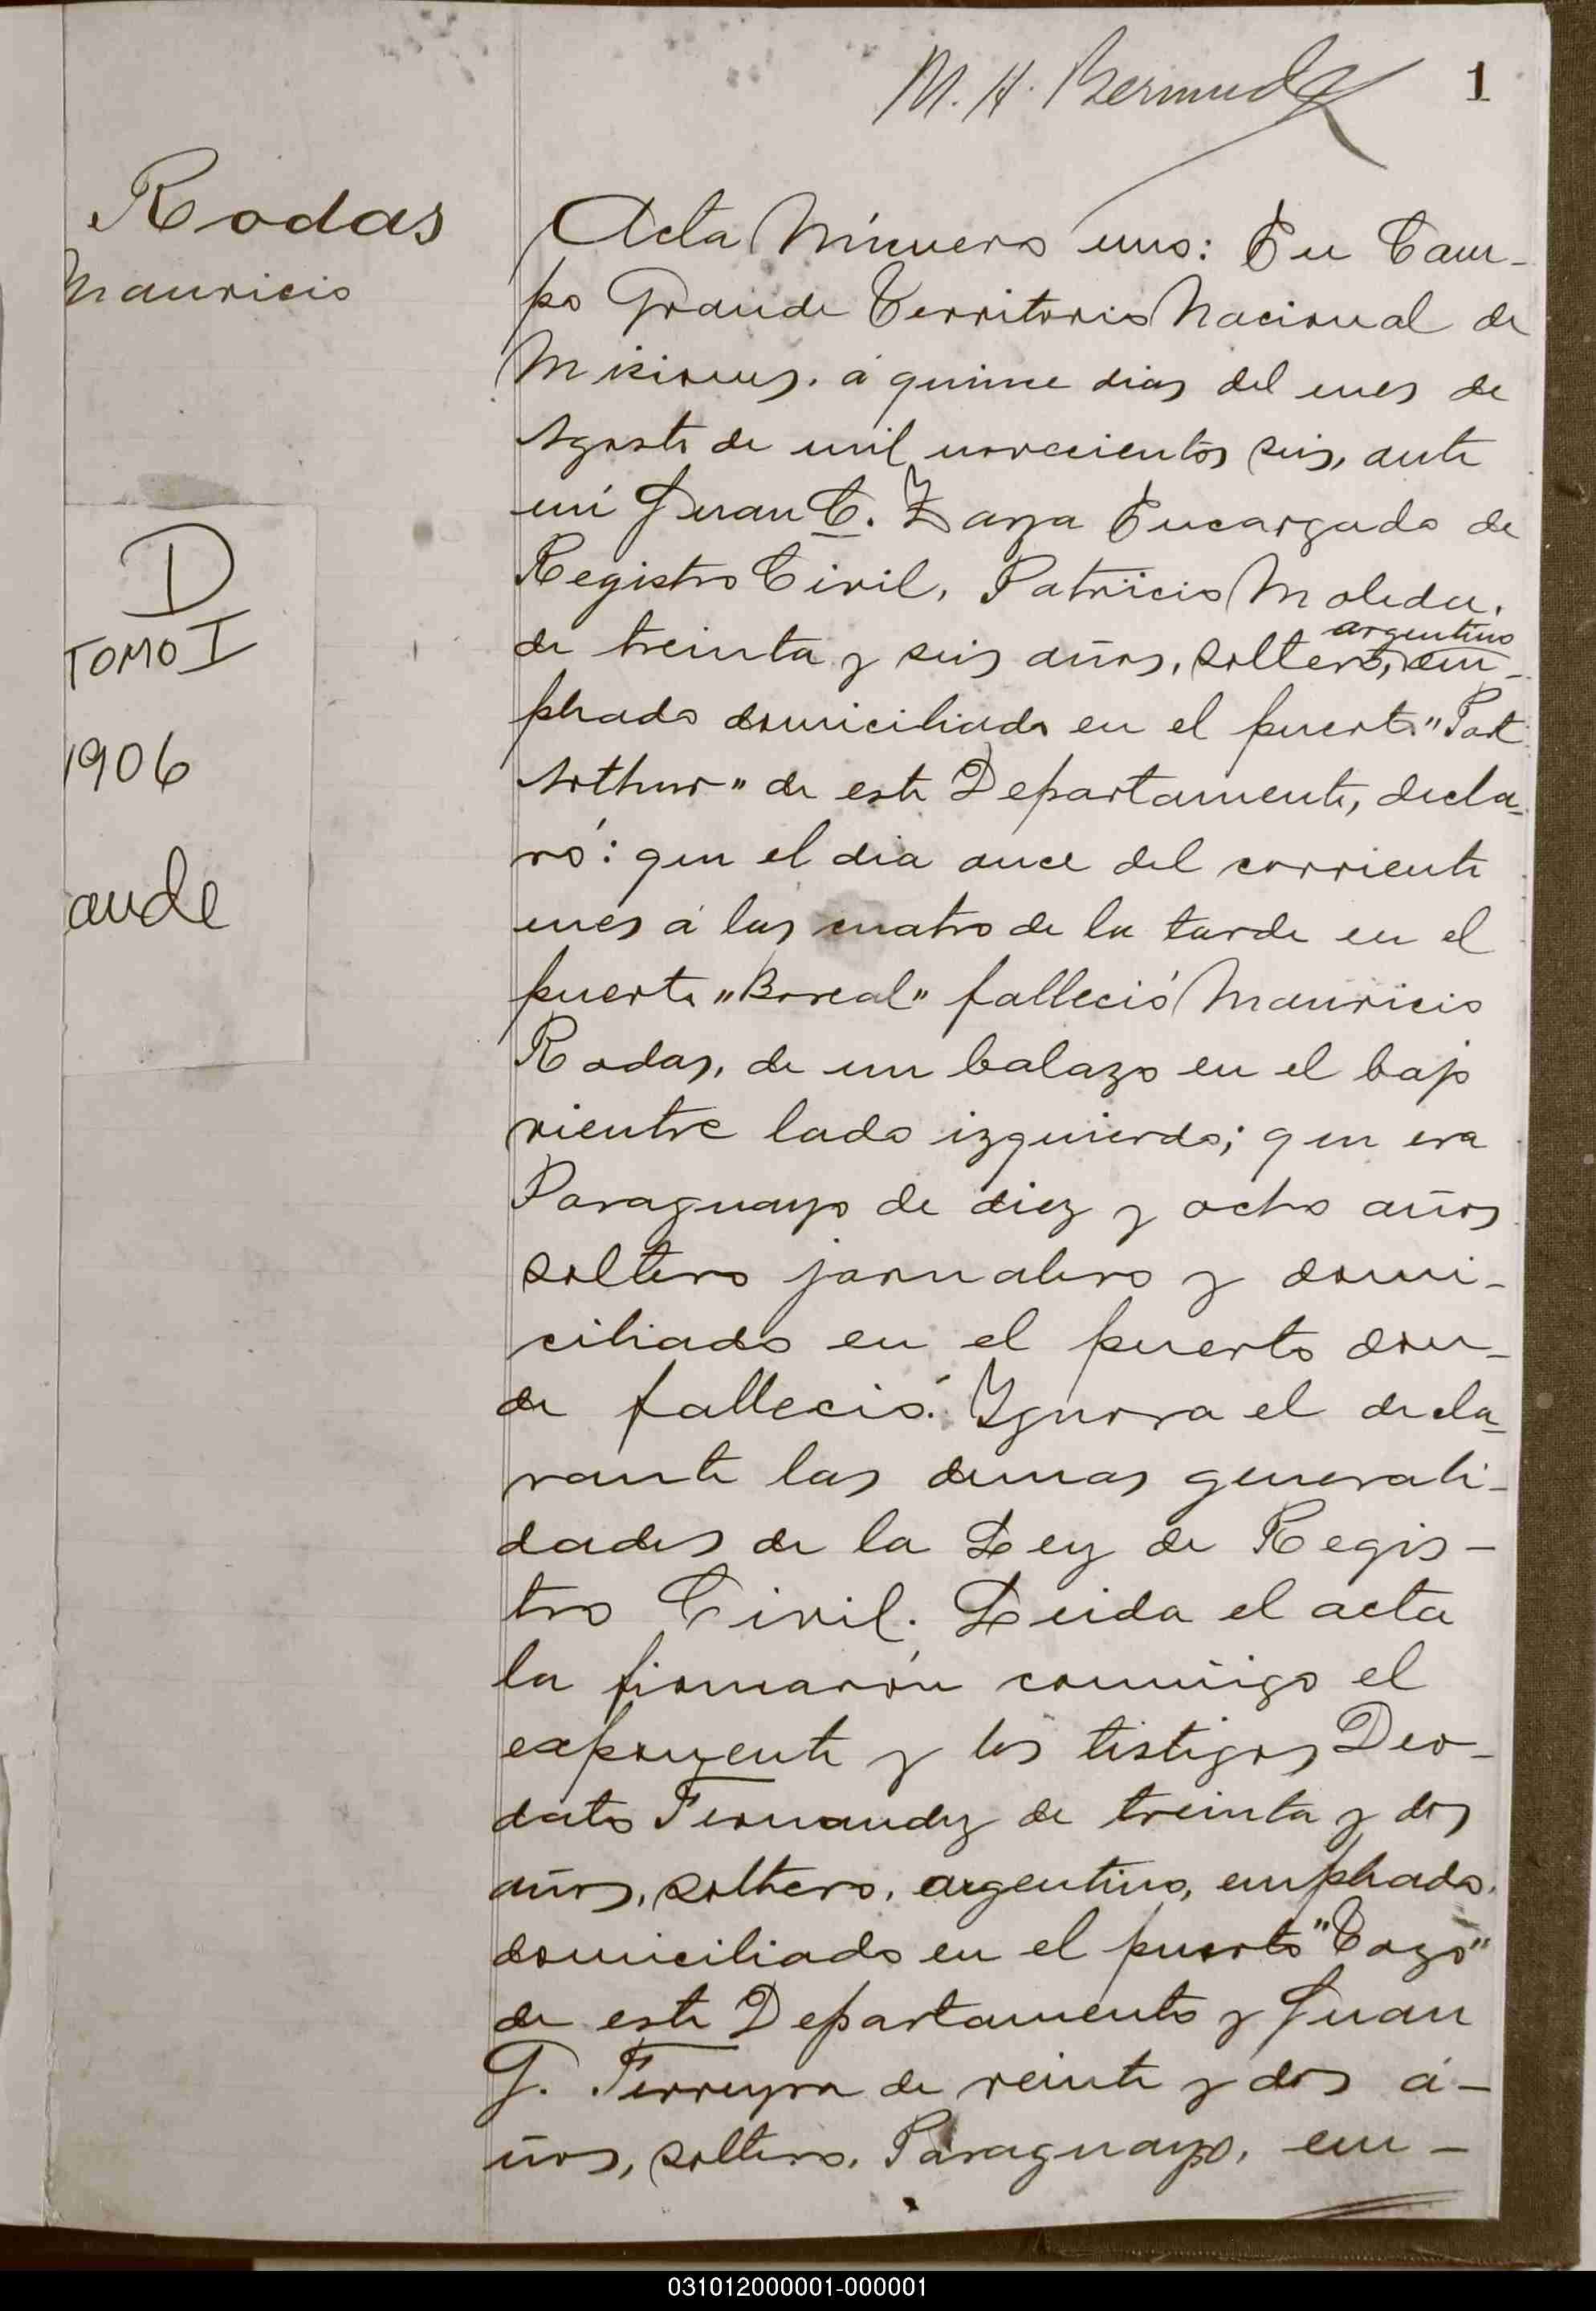 M. H. Bermudez
1
Rodas
Mauricio
D
TOMO I
1906
ande
Acta Número uno: En Cam-
po Grande Territorio Nacional de
Misiones. á quince dias del mes de
Agosto de mil novecientos seis, ante
mí Juan C. Zaya Encargado de
Registro Civil, Patricio Moleda,
argentino
de treinta y seis años, soltero, em-
pleado domiciliado en el puerto "Port
Arthur" de este Departamento, decla-
ró: que el dia once del corriente
mes á las cuatro de la tarde en el
puerto "Boreal" falleció Mauricio
Rodas, de un balazo en el bajo
vientre lado izquierdo; que era
Paraguayo de diez y ocho años
soltero jornalero y domi-
ciliado en el puerto don-
de falleció. Ignora el decla-
rante las demas generali-
dades de la Ley de Regis-
tro Civil. Leida el acta
la firmarón conmigo el
exponente y los testigos Deo-
dato Fernandez de treinta y dos
años, soltero, argentino, empleado,
domiciliado en el puerto "Cazo"
de este Departamento y Juan
G. Ferreyra de veinte y dos á-
ños, soltero, Paraguayo, em-
031012000001-000001